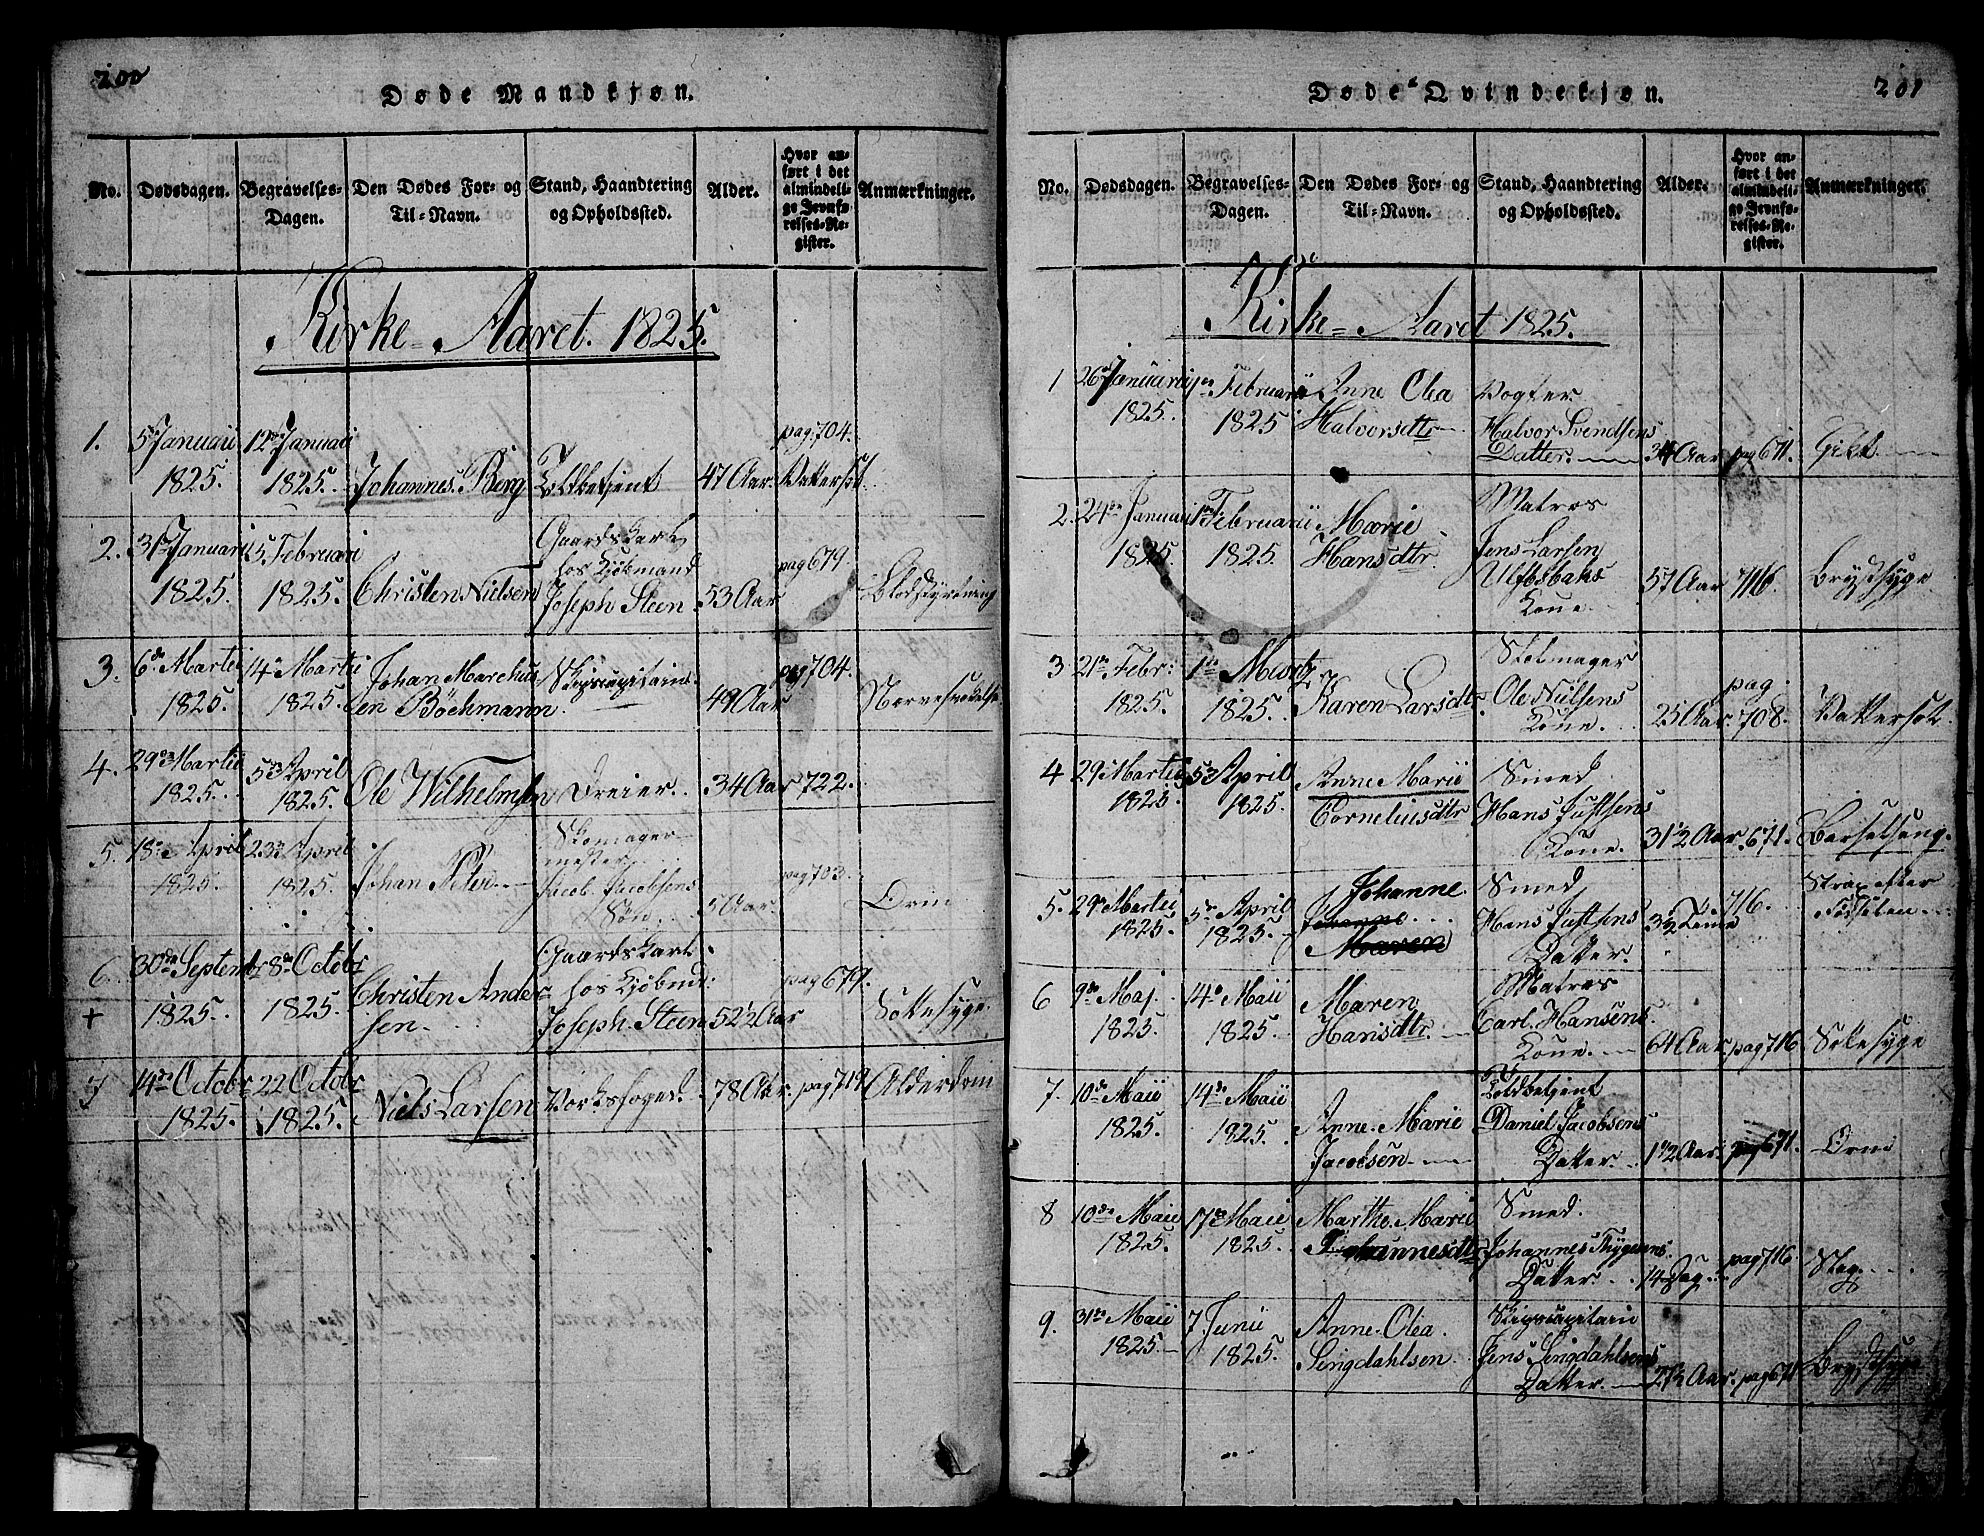 200
Døde Mandkjøn.
No.
Dødsdagen.
Begravelses-
Dagen.
Den Dødes For- og
Til-Navn.
Stand, Haandtering
og Opholdssted.
Alder.
Hvor an-
ført i det
almindeli-
ge Jevnfø-
relses-Re-
gister.
Anmærkninger.
Kirke-Aaret. 1825.
1.
5te Januarii
1825.
12te Januari
1825.
Johannes. Berg
Toldbetjent
47 Aar.
pag. 704.
Vattersot.
2.
31te Januarii
1825.
5. Februari
1825.
Christen Nielsen
Gaardskarl
hos Kjøbmand
Joseph Steen
53 Aar
pag 679.
Blodstyrtning
3.
6de Martii
1825.
14de Martii
1825.
Johan Marchus
en Böchmann
Skipscapitain.
49 Aar
pag 704.
Nervesvækkelse
4.
29de Martii
1825.
5te April
1825.
Ole Wilhelmsen
Dreier.
34 Aar
722.
5.
18de April
1825.
23de April
1825.
Johan Peter
Skomager
mester
Jacob Jacobsens
Søn
5 Aar.
pag 703.
Orm
6.
+
30de Septembr
1825.
8de Octobr
1825.
Christen Ander
sen.
Gaardskarl
hos Kjøbmd:
Joseph. Steen
52½ Aar
pag 679.
Sottesyge.
7
14de Octobr
1825.
22 Octobr
1825.
Niels Larsen
Værksfoged
78 Aar.
pag 719
Alderdom
201
Døde Qvindekjøn.
No.
Dødsdagen.
Begravelses-
Dagen.
Den Dødes For- og
Til-Navn.
Stand, Haandtering
og Opholdssted.
Alder.
Hvor an-
ført i det
almindeli-
ge Jevnfø-
relses-Re-
gister.
Anmærkninger.
Kirke-Aaret 1825.
1
26de Januarii
1825.
1ste Februarii
1825
Anne Olea
Halvorsdtr
Vogter
Halvor Svendsens
Datter.
Aar
pag 671.
Gikt.
2.
24de Januarii
1825
1ste Februarii
1825.
Marie
Hansdtr.
Matros
Jens Larsen
Ulfesbaks
Kone
57 Aar
716.
Brystsyge
3
21de Febr:
1825.
1ste Martz
1825.
Karen Larsdtr.
Stolmager
Ole Nielsens
Kone.
25 Aar
pag
708.
Vattersot.
4
29de Martii
1825.
5te April
1825.
Anne Marie
Corneliusdtr
Smed
Hans Justsens
Kone.
31½ Aar.
671.
Barselseng.
5.
29de Martii
1825.
5te April
1825.
Johanne
Maren
Smed
Hans Justsens
Datter.
3½ Time
716.
Strax efter
Fødselen
6
9de Maj.
1825.
14de Maii
1825.
Maren
Hansdtr.
Matros
Carl. Hansens.
Kone.
64 Aar.
pag 716
Sottesyge
7.
10de Maii
1825.
14de Maii
1825.
Anne. Marie
Jacobsen.
Toldbetjent
Daniel Jacobsens
Datter
1½ Aar.
pag 671.
Orm
8
10de Maii
1825.
17de Maii
1825.
Marthe. Marie
Johannesdtr
Smed.
Johannes Thygesens
Datter
14 Dag
pag 716
Slag
9.
31te Maii
1825.
7 Junii
1825.
Anne. Olea.
Lingdahlsen.
Skipscapitain
Jens Lingdahlsens
Datter.
2½ Aar.
pag 671
Brystsyge